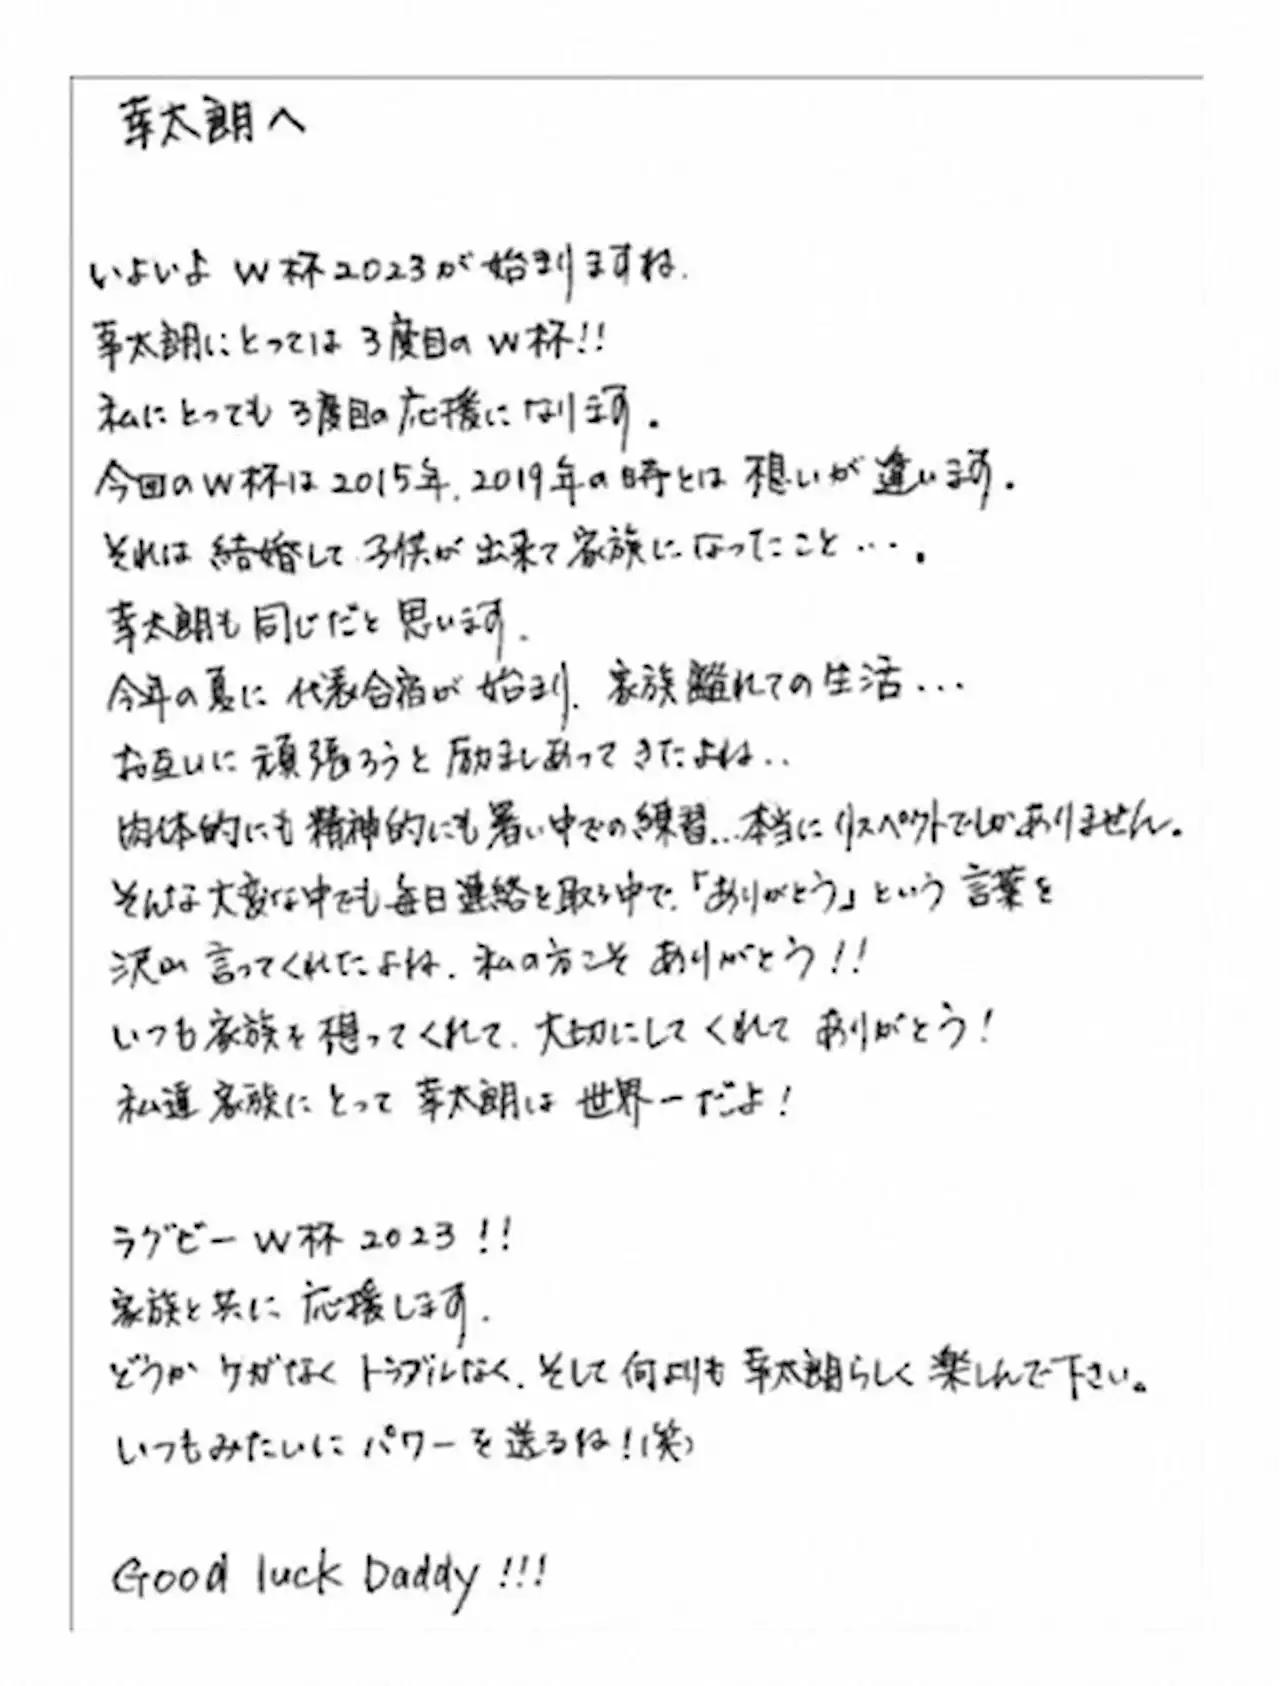 幸太朗へ
いよいよ W杯2023が始まりますね.
幸太朗にとっては 3度目の W杯!!
私にとっても 3度目の応援になります。
今回のW杯は 2015年、2019年の時とは 想いが 違います。
それは 結婚して 子供が 出来て 家族に なったこと…。
幸太朗も 同じだと 思います.
今年の夏に 代表合宿が 始まり、家族離れての生活...
お互いに 頑張ろうと 励ましあって きたよね..
肉体的にも 精神的にも 暑い中での練習...本当に リスペクトでしかありません。
そんな大変な中でも 毎日連絡を取る中で、「ありがとう」という 言葉を
沢山 言ってくれたよね、私の方こそ ありがとう!!
いつも 家族を 想ってくれて、大切にして くれて ありがとう!
私達 家族に とって 幸太朗は 世界一だよ!
ラグビー W杯 2023 !!
家族と共に 応援します.
どうか ケガなく トラブルなく、そして 何よりも 幸太朗らしく 楽しんで下さい。
いつもみたいに パワーを送るね!(笑)
Good luck Daddy !!!